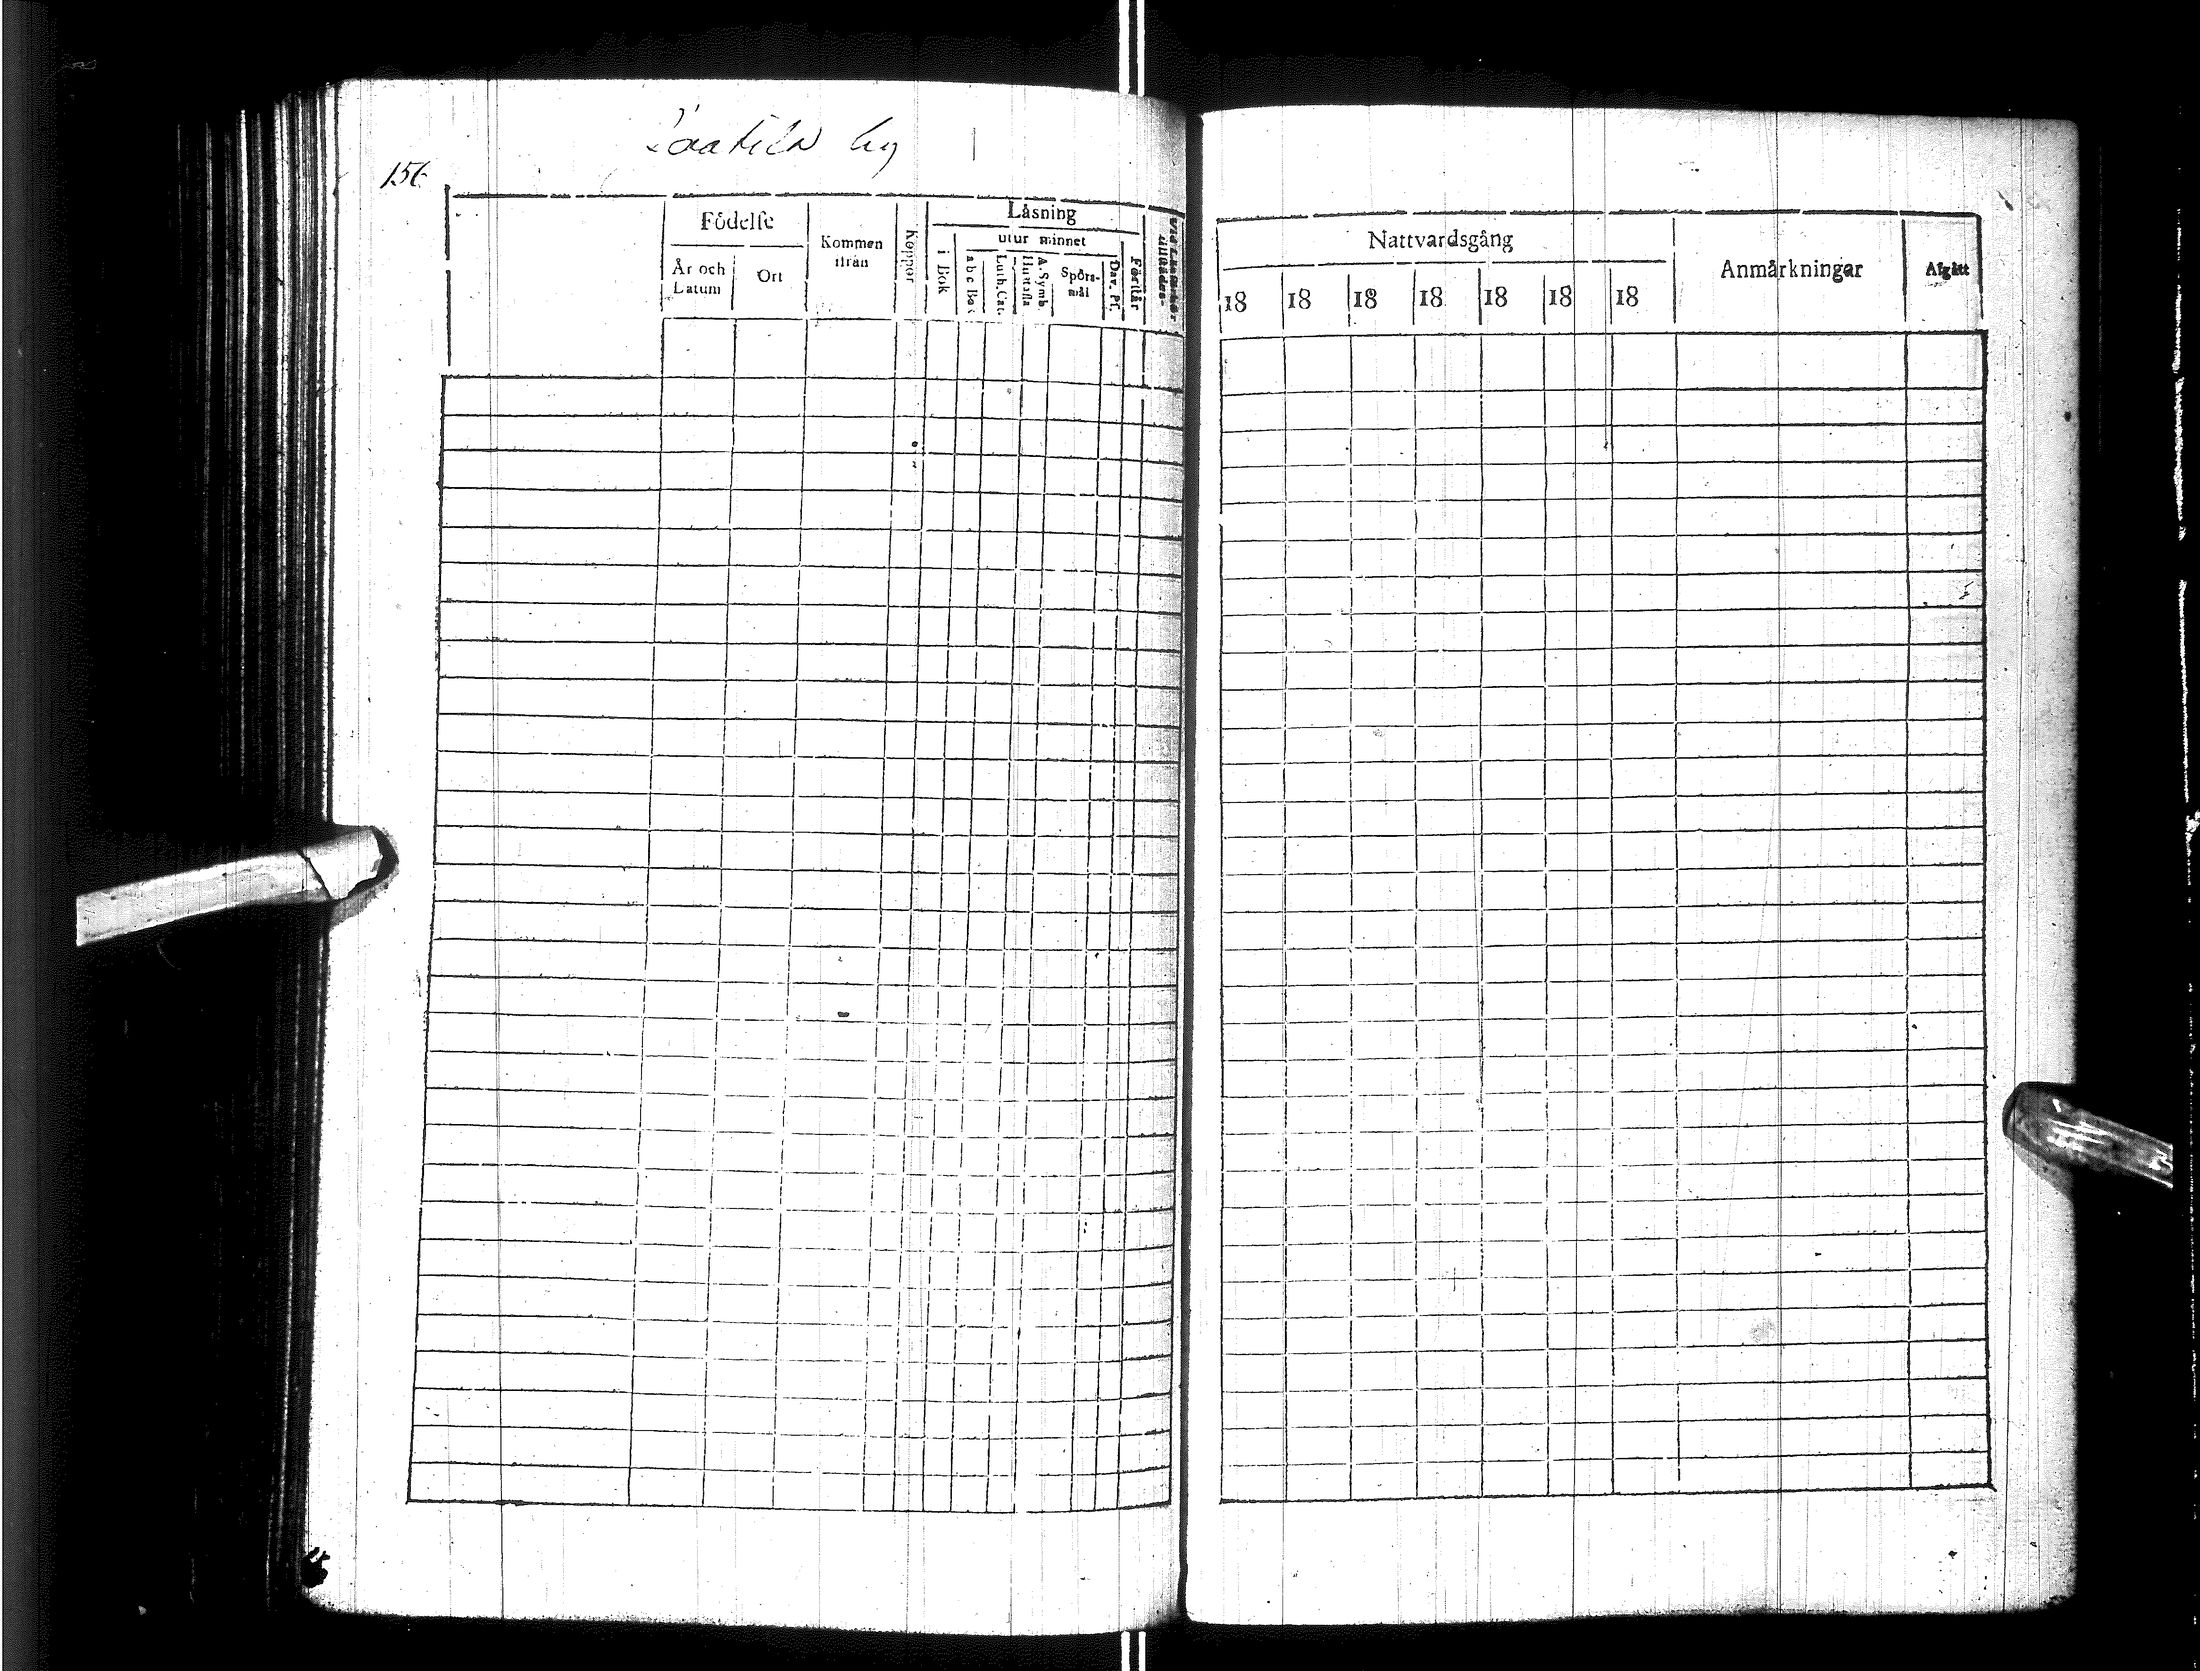 by
156
Födelse
År och Datum
Ort
Kommen ifrån
Koppor
Läsning
i Bok
utur minnet
a b c Bok
Luth. Cat.
Hustafla
A. Symb.
Spörsmål
Dav. Ps.
Förstår
Nattvardsgång
18 18 18 18 18 18 18
Anmärkningar
Afgått